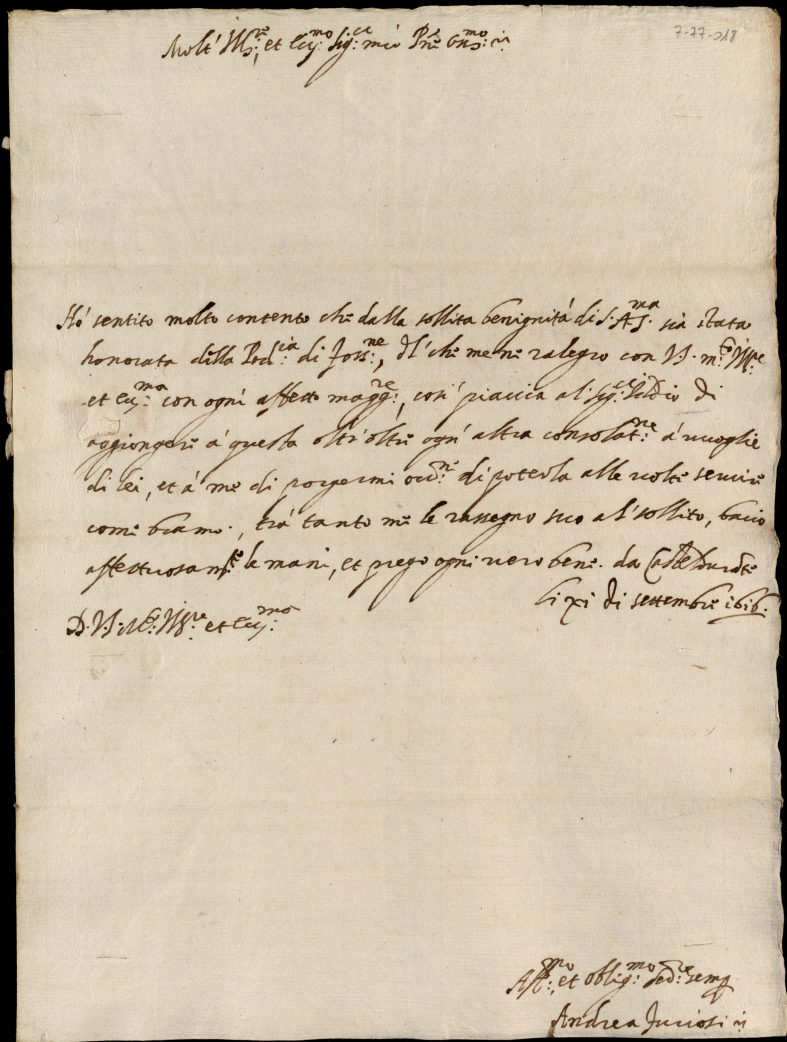 7-77-018
Molt' Ill.re et Ecc.mo Sig.re mio P.ne Oss.mo
Hò sentito molto contento che dalla sollita benignità di S. A. S.ma sia stata
honorata della Pod.ia di Foss.ne, Il che me ne ralegro con V.S. m.to Ill.re
et Ecc.ma con ogni affetto magg.re, così piaccia al Sig.r Iddio di
aggiongere à questa oltr'oltre ogn' altra consolat.ne à vuoglie
di lei, et à me di porgermi occ.ne di poterla alle volte servire
come bramo, trà tanto me le rassegno suo al' sollito, bacio
affettuosam.te le mani, et prego ogni vero bene. da CastelDurante
li xi di settembre 1616.
D. V.S. M.to Ill.re et Ecc.ma
Aff.mo et oblig.mo Sed.re semp
Andrea